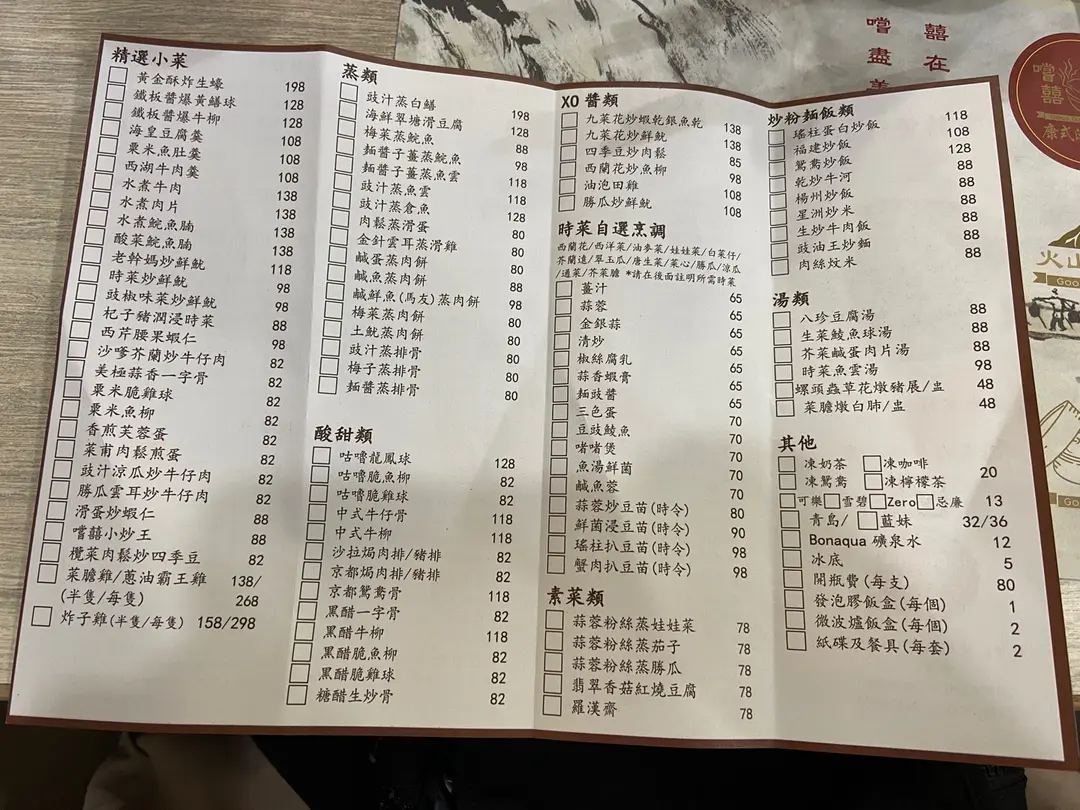 精選小菜
黃金酥炸生蠔 198
鐵板醬爆黃鱔球 128
鐵板醬爆牛柳 128
海皇豆腐羹 108
粟米魚肚羹 108
西湖牛肉羹 108
水煮牛肉 138
水煮肉片 138
水煮鯇魚腩 138
酸菜鯇魚腩 138
老幹媽炒鮮魷 118
時菜炒鮮魷 98
豉椒味菜炒鮮魷 98
杞子豬潤浸時菜 88
西芹腰果蝦仁 98
沙嗲芥蘭炒牛仔肉 82
美極蒜香一字骨 82
粟米脆雞球 82
粟米魚柳 82
香煎芙蓉蛋 82
菜甫肉鬆煎蛋 82
豉汁涼瓜炒牛仔肉 82
勝瓜雲耳炒牛仔肉 82
滑蛋炒蝦仁 88
嚐囍小炒王 88
欖菜肉鬆炒四季豆 82
菜膽雞/蔥油霸王雞 138/
(半隻/每隻) 268
炸子雞(半隻/每隻) 158/298
蒸類
豉汁蒸白鱔 198
海鮮翠塘滑豆腐 128
梅菜蒸鯇魚 88
麵醬子薑蒸鯇魚 98
麵醬子薑蒸魚雲 118
豉汁蒸魚雲 118
豉汁蒸倉魚 128
肉鬆蒸滑蛋 80
金針雲耳蒸滑雞 80
鹹蛋蒸肉餅 80
鹹魚蒸肉餅 88
鹹鮮魚(馬友)蒸肉餅 98
梅菜蒸肉餅 80
土魷蒸肉餅 80
豉汁蒸排骨 80
梅子蒸排骨 80
麵醬蒸排骨 80
酸甜類
咕嚕龍鳳球 128
咕嚕脆魚柳 82
咕嚕脆雞球 82
中式牛仔骨 118
中式牛柳 118
沙拉焗肉排/豬排 82
京都焗肉排/豬排 82
京都鴛鴦骨 118
黑醋一字骨 82
黑醋牛柳 118
黑醋脆魚柳 82
黑醋脆雞球 82
糖醋生炒骨 82
XO 醬類
九菜花炒蝦乾銀魚乾 138
九菜花炒鮮魷 138
四季豆炒肉鬆 85
西蘭花炒魚柳 98
油泡田雞 108
勝瓜炒鮮魷 108
時菜自選烹調
西蘭花/西洋菜/油麥菜/娃娃菜/白菜仔/
芥蘭遠/翠玉瓜/唐生菜/菜心/勝瓜/涼瓜
/通菜/芥菜膽 *請在後面註明所需時菜
薑汁 65
蒜蓉 65
金銀蒜 65
清炒 65
椒絲腐乳 65
蒜香蝦膏 65
麵豉醬 65
三色蛋 70
豆豉鯪魚 70
啫啫煲 70
魚湯鮮菌 70
鹹魚蓉 70
蒜蓉炒豆苗(時令) 80
鮮菌浸豆苗(時令) 90
瑤柱扒豆苗(時令) 98
蟹肉扒豆苗(時令) 98
素菜類
蒜蓉粉絲蒸娃娃菜 78
蒜蓉粉絲蒸茄子 78
蒜蓉粉絲蒸勝瓜 78
翡翠香菇紅燒豆腐 78
羅漢齋 78
炒粉麵飯類
瑤柱蛋白炒飯 118
福建炒飯 108
鴛鴦炒飯 128
乾炒牛河 88
楊州炒飯 88
星洲炒米 88
生炒牛肉飯 88
豉油王炒麵 88
肉絲炆米 88
湯類
八珍豆腐湯 88
生菜鯪魚球湯 88
芥菜鹹蛋肉片湯 88
時菜魚雲湯 98
螺頭蟲草花燉豬展/盅 48
菜膽燉白肺/盅 48
其他
凍奶茶 凍咖啡
凍鴛鴦 凍檸檬茶 20
可樂 雪碧 Zero 忌廉 13
青島/ 藍妹 32/36
Bonaqua 礦泉水 12
冰底 5
開瓶費(每支) 80
發泡膠飯盒(每個) 1
微波爐飯盒(每個) 2
紙碟及餐具(每套) 2
囍在
嚐盡美
嚐囍
火山
Goo